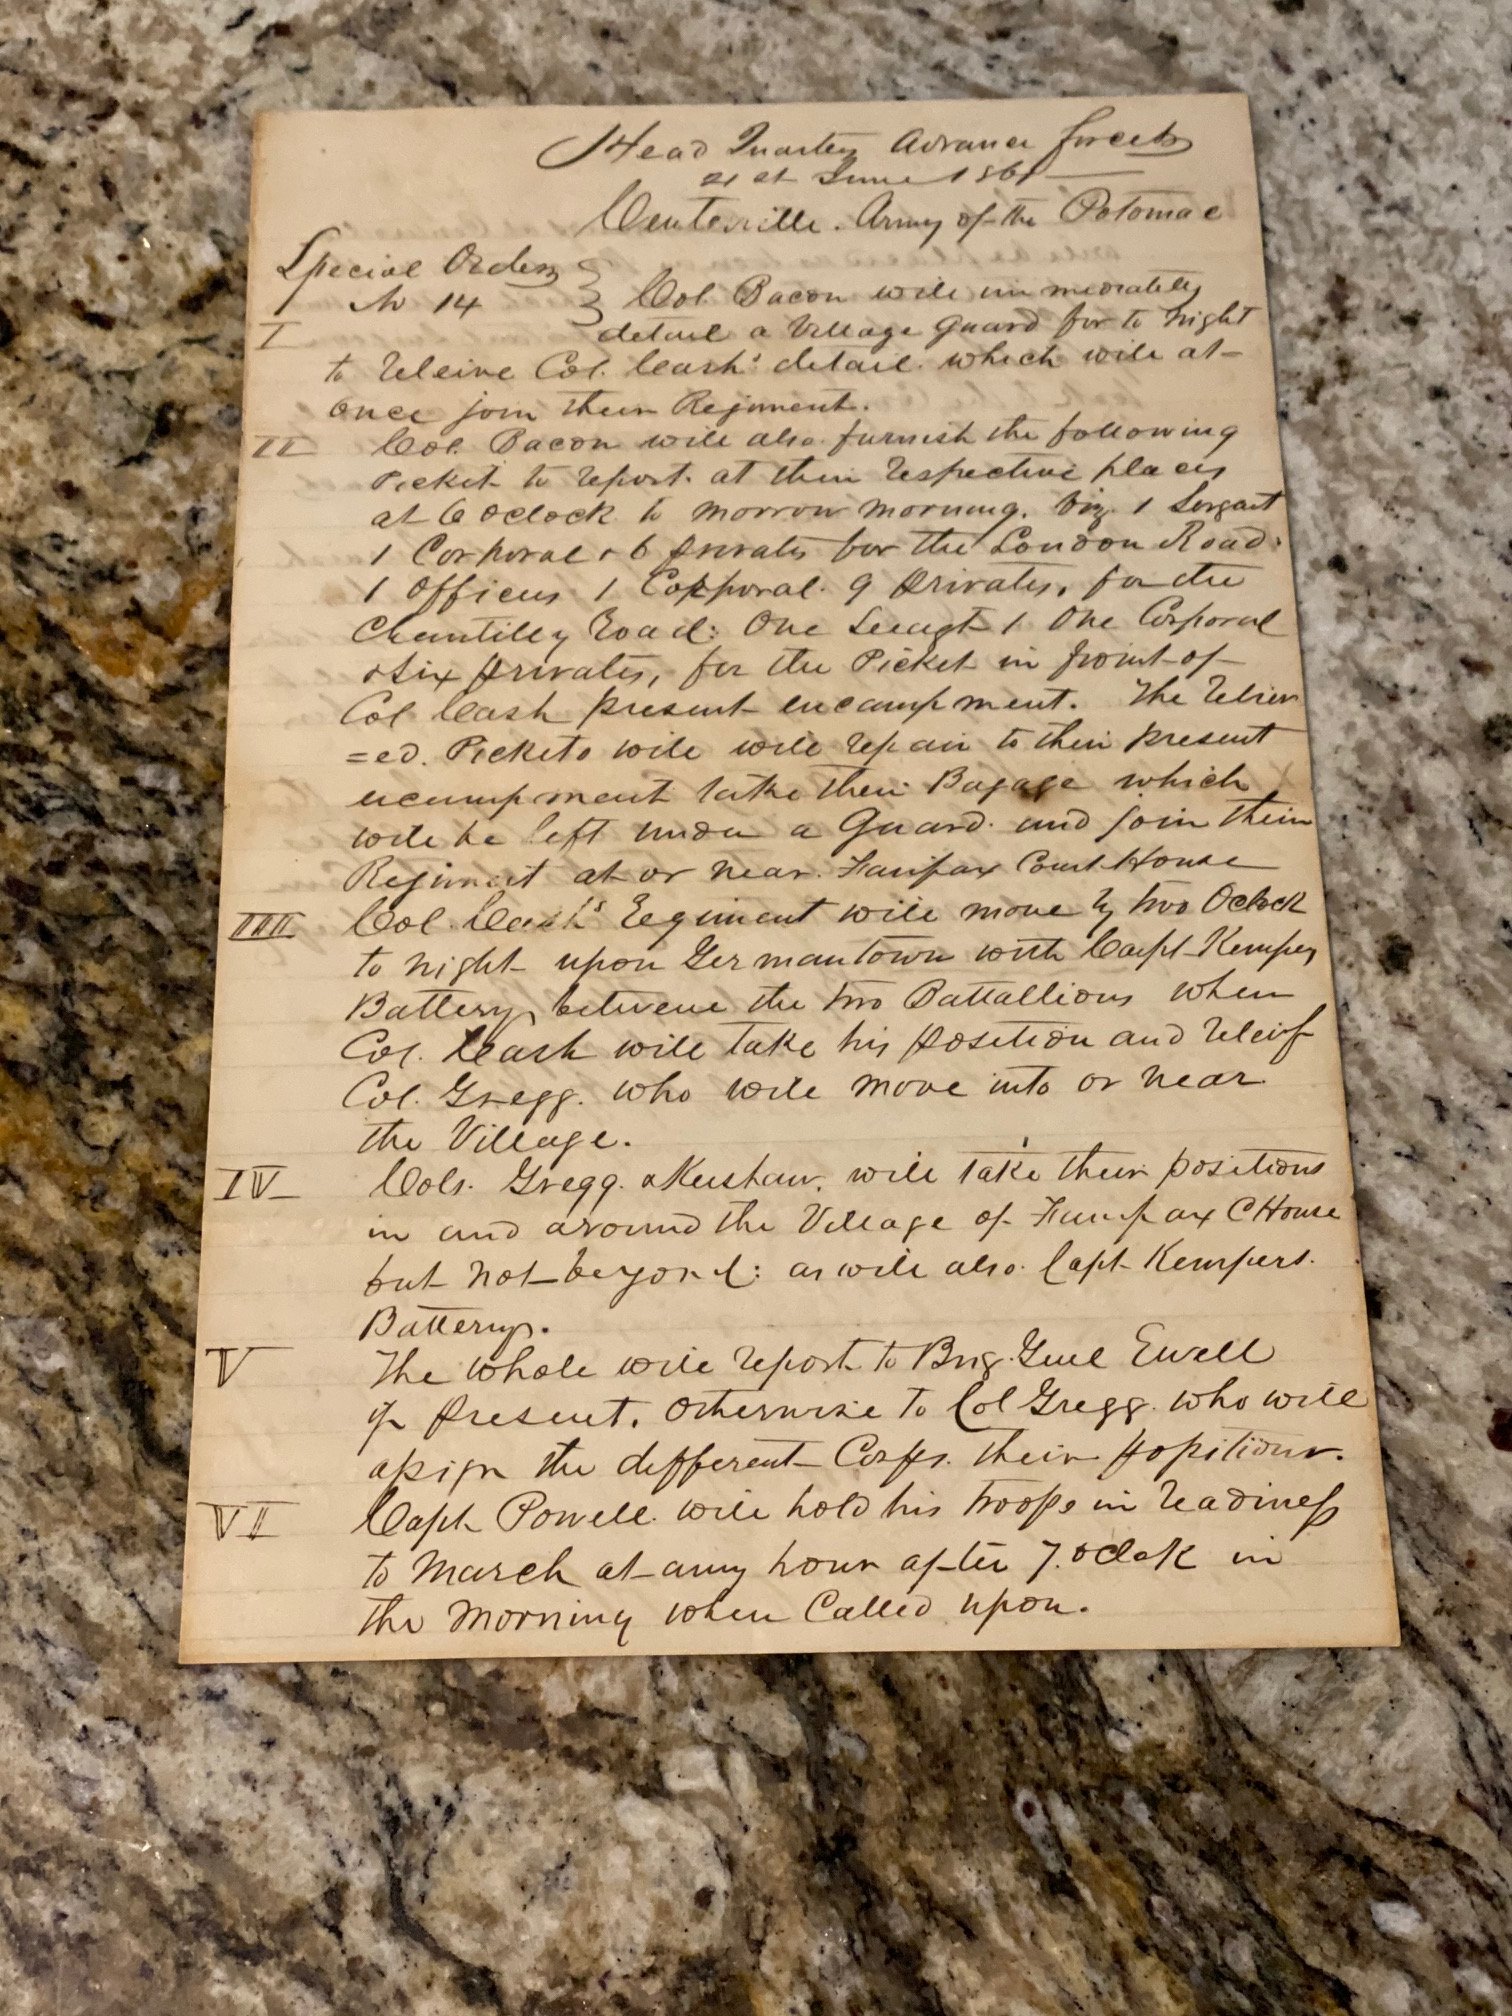 Head Quarters Advance forces
21st June 1861
Centerville. Army of the Potomac
Special Orders
No 14
I Col. Bacon will immediately
detail a Village guard for to night
to releive Col. Cash's detail. which will at
once join their Regiment.
II Col. Bacon will also furnish the following
Picket to report. at their respective places
at 6 oclock to morrow morning. viz. 1 Sergant
1 Corporal & 6 privates for the London Road.
1 Officer 1 Corporal. 9 privates, for the
Chantilly Road: One 1 One Corporal
& six privates, for the Picket in front of
Col Cash present encampment. The reliev
=ed. Pickets will will repair to their present
encampment take their Bagage which
will be left under a Guard. and join their
Regiment at or near. Fairfax Court House
III Col. Cash's Regiment will move by two Oclock
to night upon Germantown with Capt Kempers
Battery, betweene the two Battallions when
Col. Cash will take his position and releif
Col. Gregg. who will move into or near
the Village.
IV Cols. Gregg. & Kershaw. will take their positions
in and around the Village of Fairfax CHouse
but not beyond: as will also. Capt Kempers.
Battery.
V The whole will report to Brig. Genl Ewell
if present. otherwise to Col Gregg. who will
assign the different Corps. their positions.
VI Capt Powell. will hold his troops in readiness
to march at any hour after 7. oclok in
the morning when Called upon.